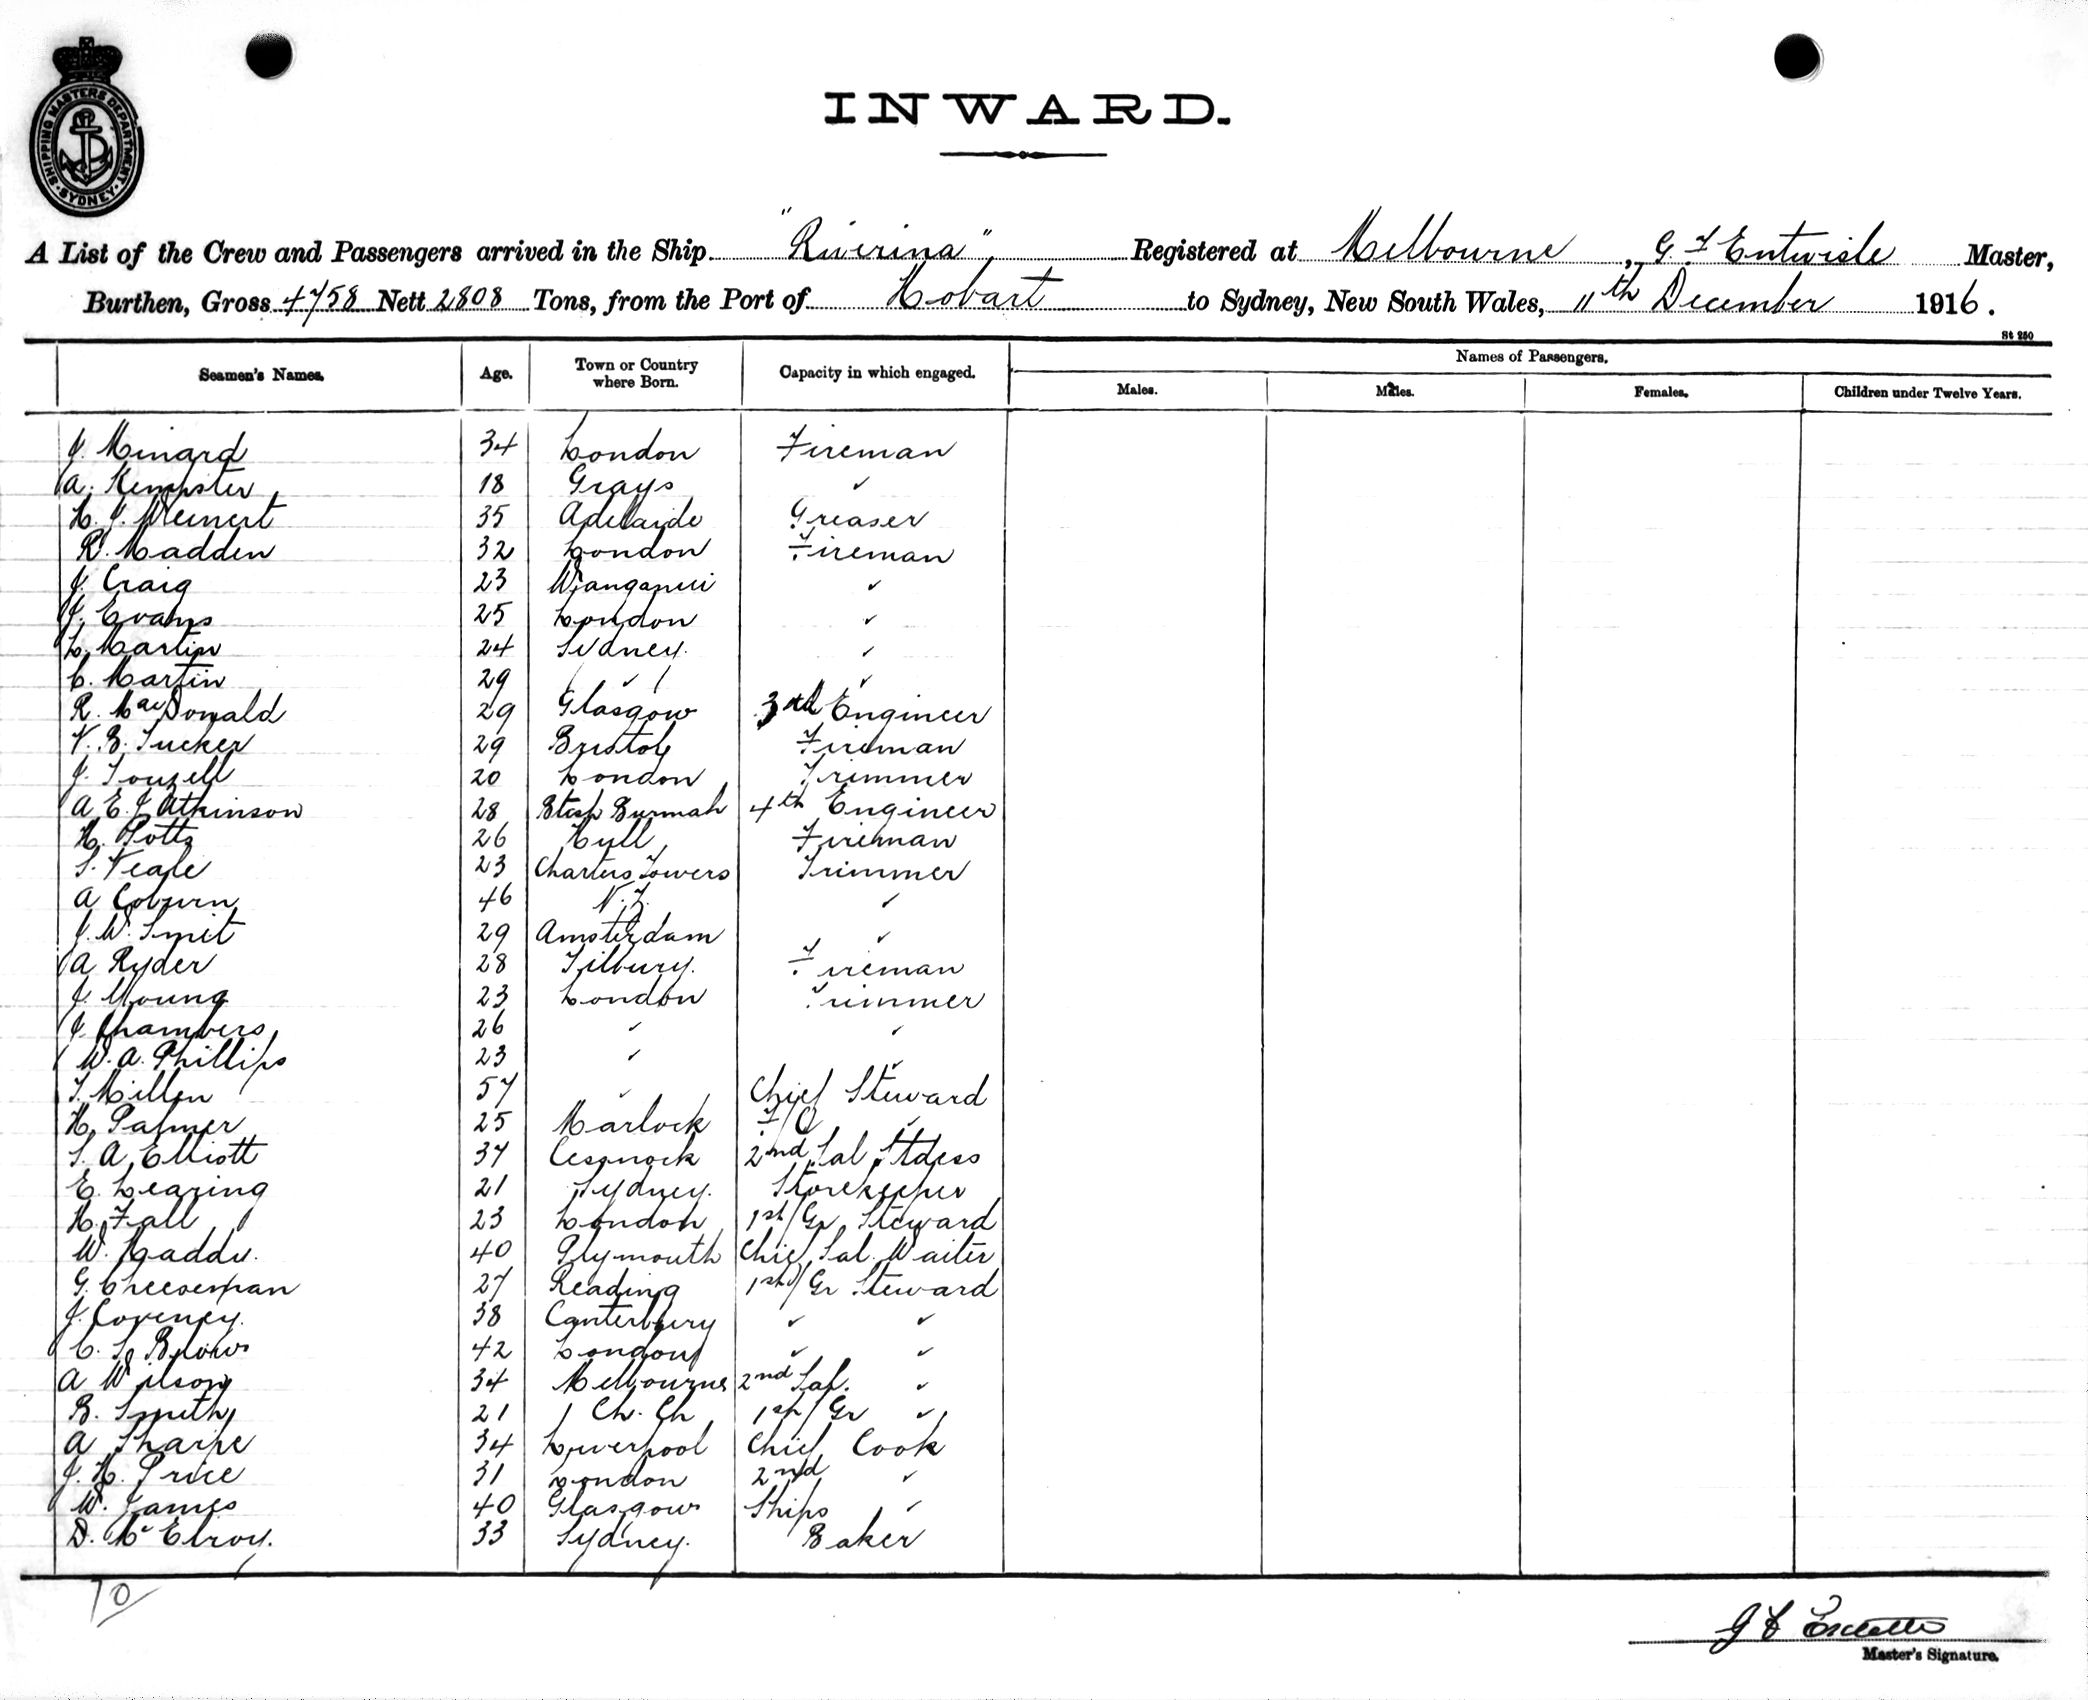 SHIPPING MASTERS DEPARTMENT · SYDNEY ·
INWARD.
A List of the Crew and Passengers arrived in the Ship "Riverina" Registered at Melbourne, G F Entwisle Master,
Burthen, Gross 4758 Nett 2808 Tons, from the Port of Hobart to Sydney, New South Wales, 11th December 1916.
St 250
Seamen's Names. Age. Town or Country where Born. Capacity in which engaged. Names of Passengers.
Males. Males. Females. Children under Twelve Years.
J. Minard 34 London Fireman
A. Kempster 18 Grays ✓
H. J. Meinert 35 Adelaide Greaser
R. Madden 32 London Fireman
J. Craig 23 Wanganui ✓
J. Evans 25 London ✓
L. Martin 24 Sydney. ✓
C. Martin 29 ✓ ✓
R. MacDonald 29 Glasgow 3rd Engineer
V. B. Tucker 29 Bristol Fireman
J. Touzell 20 London Trimmer
A E. J Atkinson 28 Burmah 4th Engineer
H. Potts 26 Hull Fireman
S. Veale 23 Charters Towers Trimmer
A 46 N.Z. ✓
J. W. Smit 29 Amsterdam ✓
A Ryder 28 Tilbury. Fireman
J. Young 23 London Trimmer
J. Chambers 26 ✓ ✓
W. A. Phillips 23 ✓ ✓
T. Millen 57 ✓ Chief Steward
H. Palmer 25 F/C ✓
S. A. Elliott 37 Cessnock 2nd Sal Stdess
E. 21 Sydney. Storekeeper
H. Fall 23 London 1st/Gr Steward
W. 40 Plymouth Chief Sal. Waiter
G. Cheeseman 27 Reading 1st/Gr Steward
J. Coveney. 38 Canterbury ✓ ✓
C. S. Brown 42 London ✓ ✓
A Wilson 34 Melbourne 2nd Sal. ✓
B. Smith 21 Ch. Ch 1st/Gr ✓
A Sharpe 34 Liverpool Chief Cook
J. H. Price 31 London 2nd ✓
W. James 40 Glasgow Ships ✓
D. McElroy. 33 Sydney. Baker
70
Master's Signature.